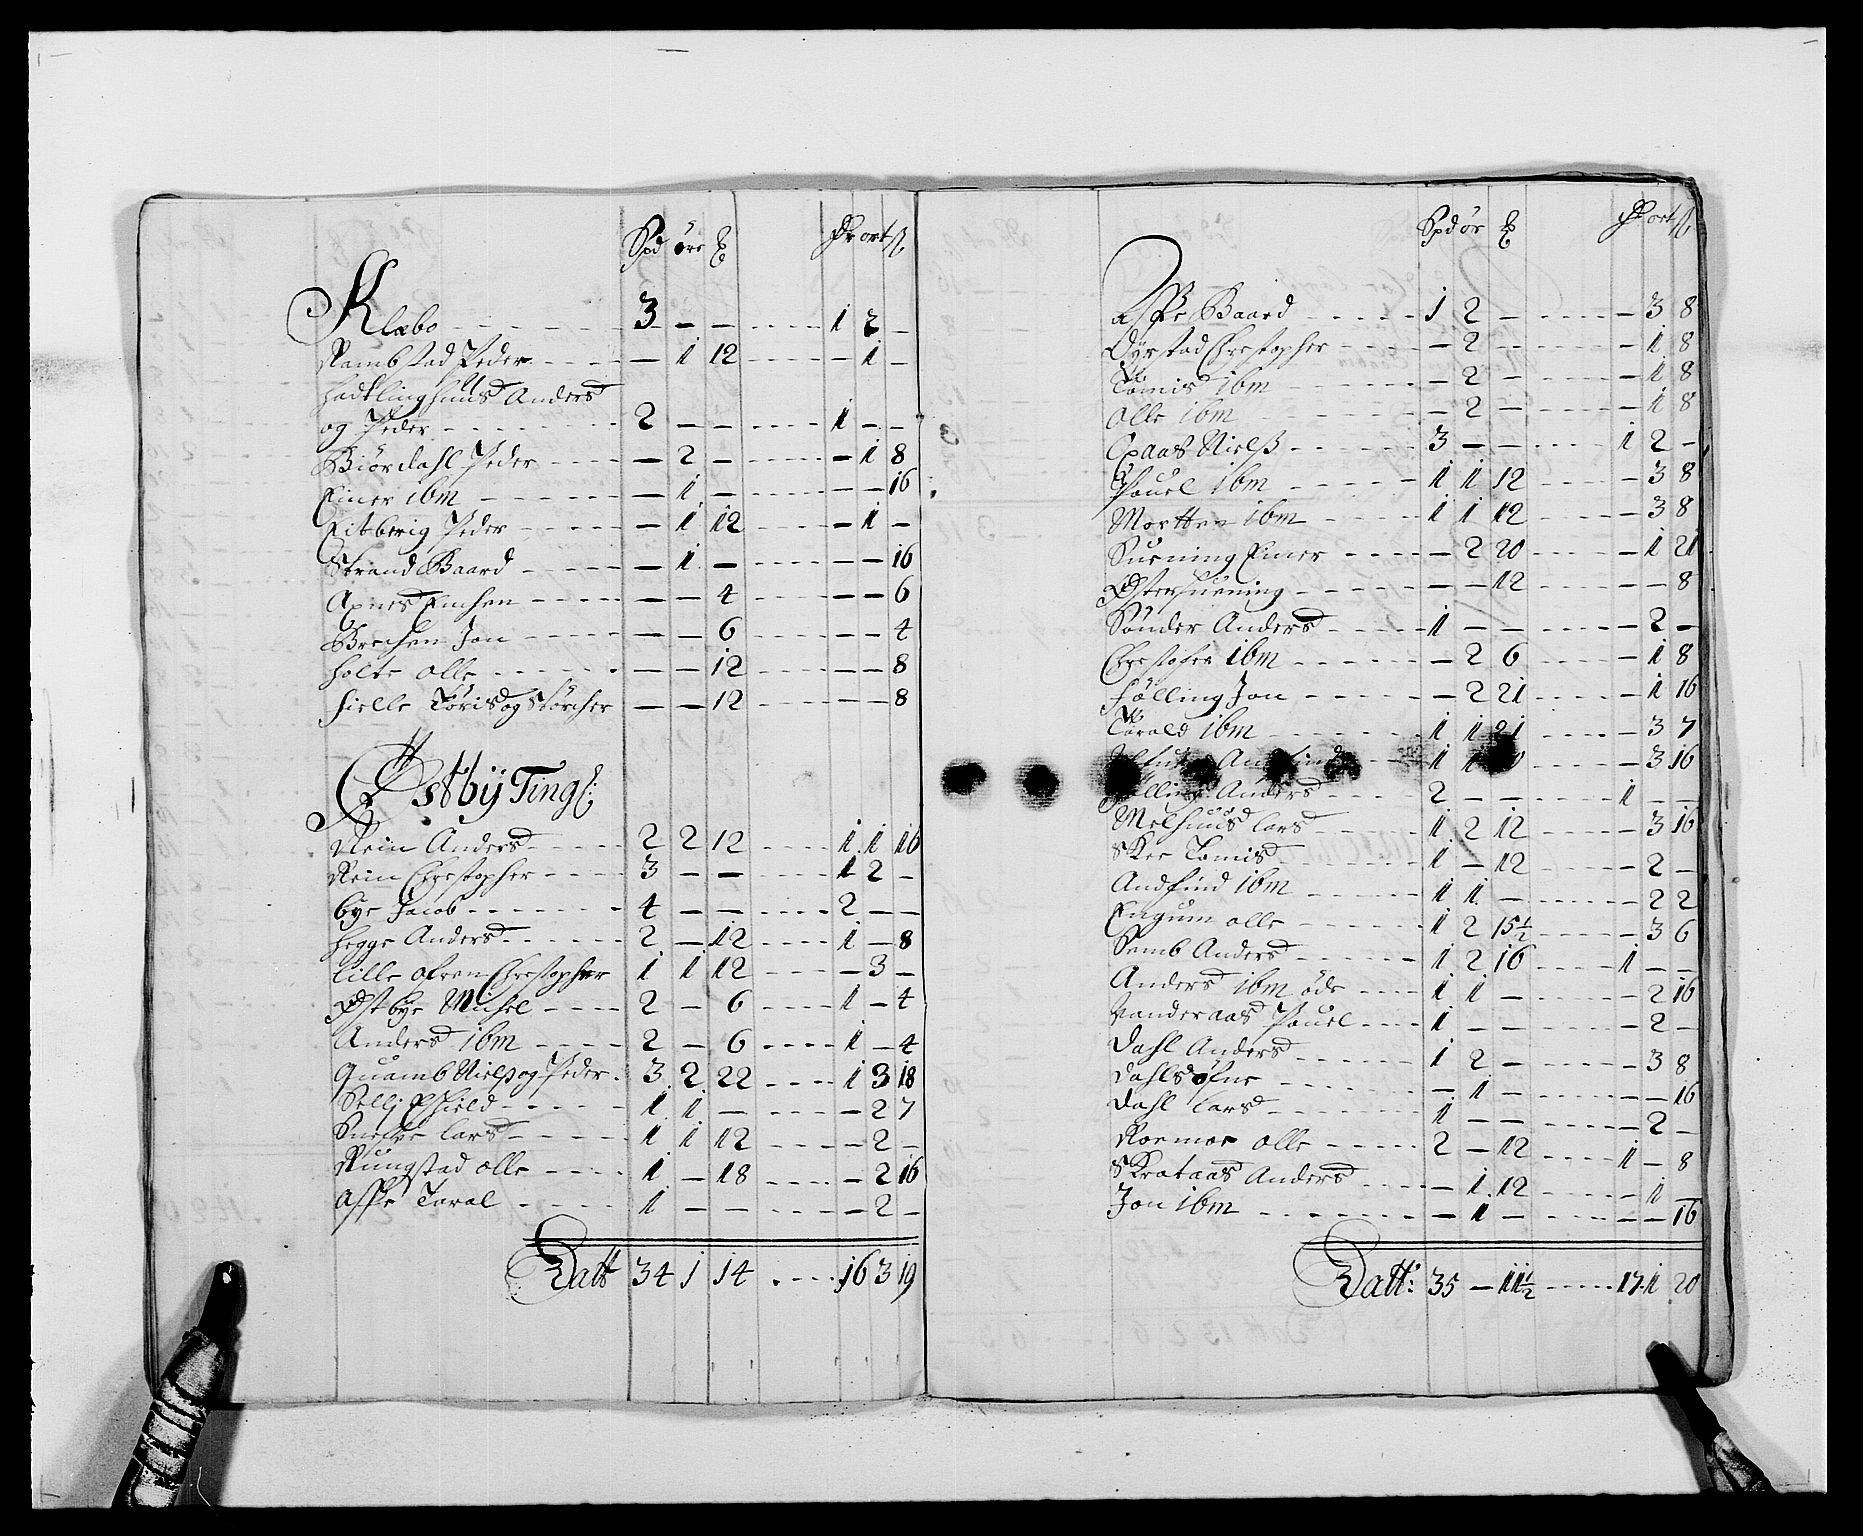 Spd öre ₰ Dr ort ß
Klæbo 3 - - 1 2 -
Rambstad Peder - 1 12 - 1 -
Hadklinghuus Anders
og Peder 2 - - 1 - -
Biördahl Peder - 2 - - 1 8
Einer ibm - 1 - - - 16
Litberig Peder - 1 12 - 1 -
Strand Baard - 1 - - - 16
Axnes - - 4 - - 6
Brechen Jon - - 6 - - 4
Holte Olle - - 12 - - 8
Fielle Töris og Störcher - - 12 - - 8
Östbÿ Ting:
Rein Anders 2 2 12 1 1 16
Rein Christopher 3 - - 1 2 -
bye Jacob 4 - - 2 - -
Hegge Anders 2 - 12 1 - 8
lille ofren Christopher 1 1 12 - 3 -
Östbye Michel 2 - 6 1 - 4
Anders ibm 2 - 6 1 - 4
Quamb Nielß og Peder 3 2 22 1 3 18
Sellj Eschield 1 1 - - 2 7
Snefue Lars 1 1 12 - 2 -
Rungstad olle 1 - 18 - 2 16
Aspe Toral 1 - - - 2 -
Latt 34 1 14 16 3 19
Spd ör ₰ Dr ort ß
Aspe Baard 1 2 - - 3 8
Dÿrstad Christopher - 2 - - 1 8
Tömis ibm - 2 - - 1 8
Olle ibm - 2 - - 1 8
Opaas Nielß 3 - - 1 2 -
Pouel ibm 1 1 12 - 3 8
Mortten ibm 1 1 12 - 3 8
Suening Einer - 2 20 - 1 21
Östersuening - - 12 - - 8
Sönder Anders 1 - - - 2 -
Christofer ibm - 2 6 - 1 8
Fölling Jon - 2 21 - 1 16
Torold ibm 1 1 21 - 3 7
1 1 - 3 16
Fölling Anders 2 - - 1 - -
Melhuus Lars 1 2 12 - 3 16
Skee Tomis 1 - 12 - 2 -
Andfind ibm 1 1 - - 2 2
Engum olle 1 2 15½ - 3 6
Semb Anders 1 2 16 1 - -
Anders ibm öde 1 1 - - 2 16
Vanderaas Pouel 1 - - - 2 -
Dahl Anders 1 2 - - 3 8
Dahls öfne - 1 - - - 16
Dahl Lars 1 - - - 2 -
Roemoe olle 2 - 12 1 - 8
Skrataas Anders - 1 12 - 1 -
Jon ibm - 1 - - - 16
Latt: 35 - 11½ 17 1 20